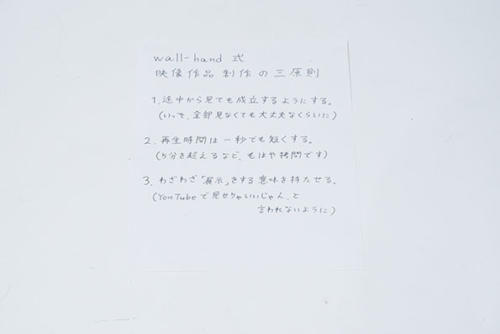 wall-hand 式
映像作品 制作の三原則
1. 途中から見ても成立するようにする。
(いっそ、全部見なくても大丈夫なくらいに)
2. 再生時間は一秒でも短くする。
(5分を超えるなど、もはや拷問です)
3. わざわざ「展示」をする意味を持たせる。
(YouTubeで見せりゃいいじゃん、と
言われないように)